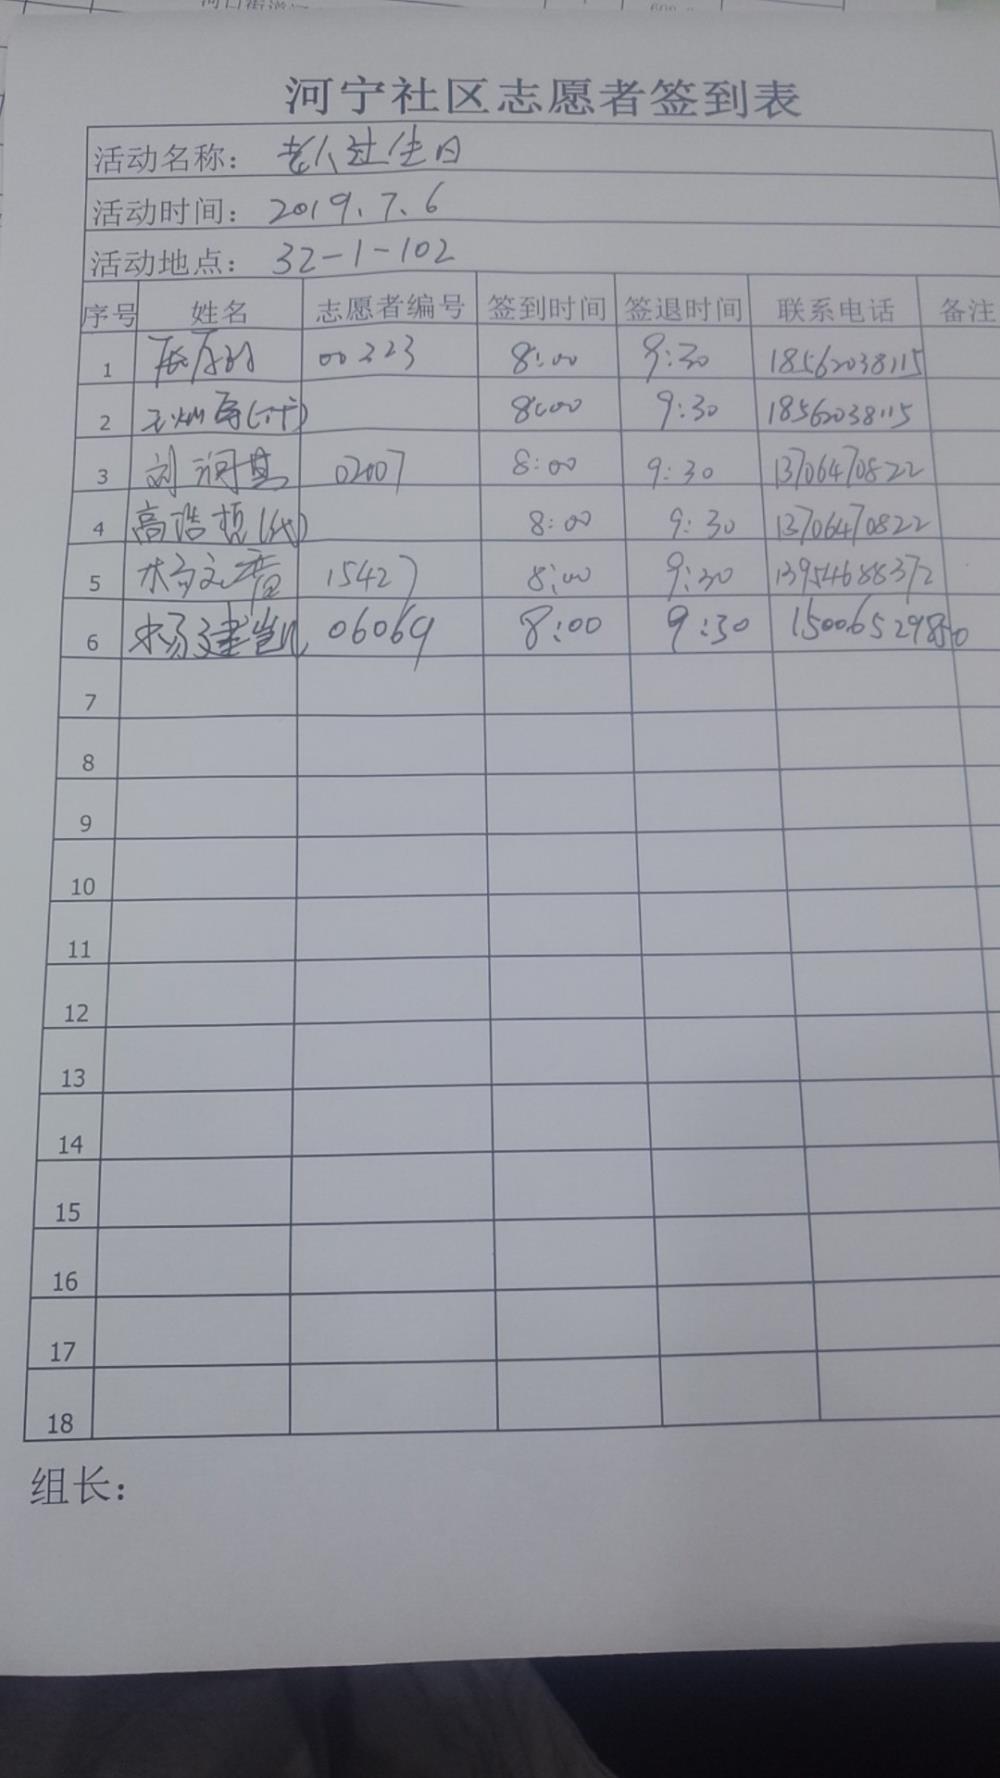 河宁社区志愿者签到表
活动名称： 老人过生日
活动时间： 2019.7.6
活动地点： 32-1-102
序号 姓名 志愿者编号 签到时间 签退时间 联系电话 备注
1 00323 8:00 9:30 18562038115
2 8:00 9:30 18562038115
3 刘润其 02007 8:00 9:30 13706470822
4 高浩哲(代) 8:00 9:30 13706470822
5 杨文香 15427 8:00 9:30 13954688372
6 杨建凯 06069 8:00 9:30
7
8
9
10
11
12
13
14
15
16
17
18
组长：